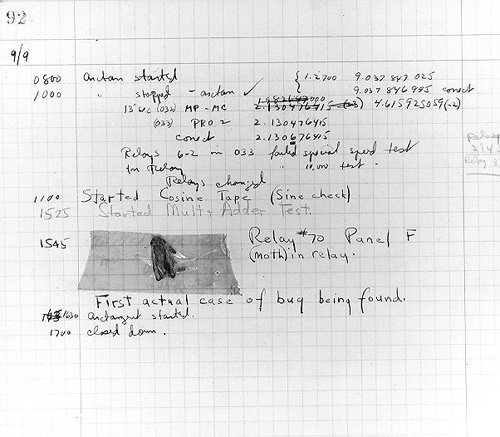 92
9/9
0800 Antan started
1000 " stopped - antan ✓ { 1.2700 9.037 847 025
9.037 846 995 correct
13"uc (032) MP - MC 2.130476415 (-3) 4.615925059(-2)
(033) PRO 2 2.130476415
correct 2.130676415
Relays 6-2 in 033 failed special speed test
in Relay " 10,000 test .
Relays changed
1100 Started Cosine Tape (Sine check)
1525 Started Mult + Adder Test.
1545 Relay #70 Panel F
(moth) in relay.
First actual case of bug being found.
1630 antangent started.
1700 closed down .